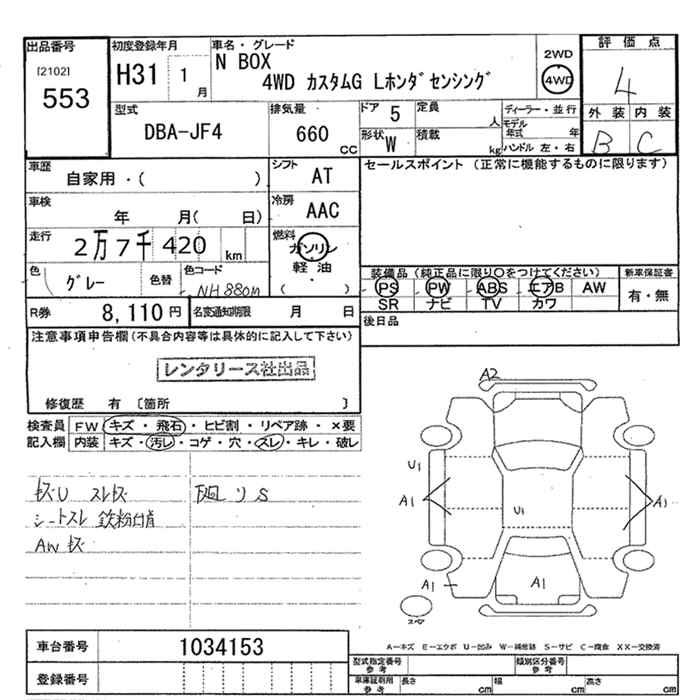 出品番号
[2102]
553
初度登録年月
H31 1月
車名・グレード
N BOX
4WD カスタムG Lホンダセンシング
2WD
4WD
評価点
4
外装 内装
B C
型式
DBA-JF4
排気量
660 CC
ドア 5
定員 人
形状 W
積載 kg
ディーラー・並行
モデル年式 年
ハンドル 左・右
車歴
自家用・( )
シフト AT
セールスポイント (正常に機能するものに限ります)
車検
年 月( 日)
冷房 AAC
走行
2万7千420 km
燃料
ガソリン
軽油
( )
色 グレー
色替
色コード NH880M
装備品 (純正品に限り○をつけてください)
新車保証書
PS PW ABS エアB AW
有・無
SR ナビ TV カワ
R券 8,110円
名変通知期限 月 日
後日品
注意事項申告欄 (不具合内容等は具体的に記入して下さい)
レンタリース社出品
修復歴 有 [箇所 ]
検査員記入欄
FW キズ・飛石・ヒビ割・リペア跡・×要
内装 キズ・汚レ・コゲ・穴・スレ・キレ・破レ
シートスレ 鉄粉付着
A2
U1
A1
A1
U1
A1
A1
スペア
A-キズ E-エクボ U-凹み W-補修跡 S-サビ C-腐食 XX-交換済
車台番号 1034153
登録番号
型式指定番号 参考
類別区分番号 参考
車庫証明用 参考
長さ cm 幅 cm 高さ cm